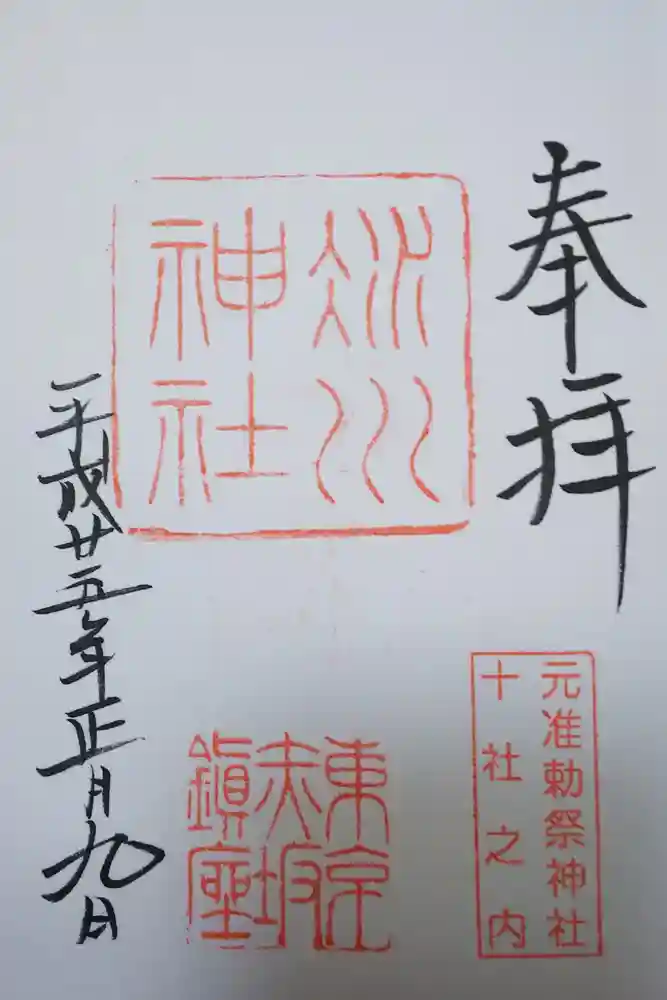 奉拝
氷川
神社
元准勅祭神社
十社之内
東京
赤坂
鎮座
平成廿五年正月九日